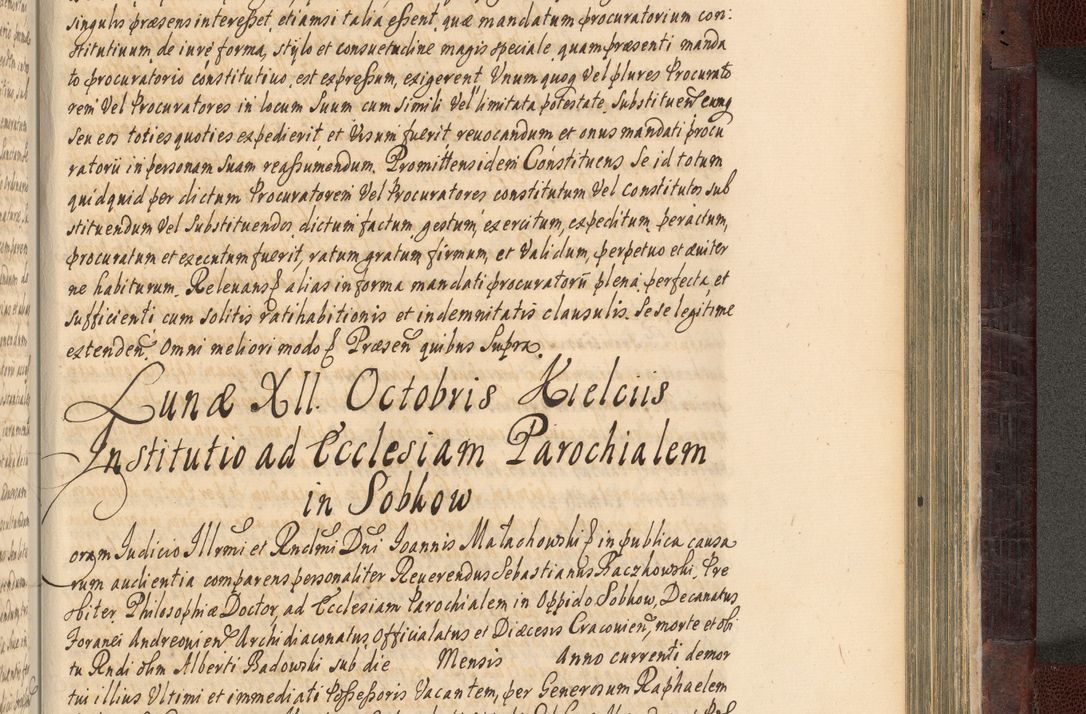 singulis præsens interesset, etiamsi talia essent, quæ mandatum procuratorium con:
stitutiuum de iure forma, stylo et consuetudine magis speciale, quam præsenti manda
to procuratorio constitutiuo, est expressum, exigerent Vnumquoq Vel plures Procurato
rem Vel Procuratores in locum Suum cum simili Vel limitata potestate, Substituen eumq
Seu eos toties quoties expedierit et Visum fuerit, reuocandum et onus mandati procu
ratorii in personam Suam reassumendum. Promittens idem Constituens Se id totum
quidquid per dictum Procuratorem Vel Procuratores constitutum Vel constitutos Sub
stituendum Vel Substituendos, dictum factum, gestum, exercitum, expeditum, peractum,
procuratum et executum fuerit, ratum gratum, firmum, et Validum, perpetuo et æuiter
ne habiturum. Releuans alias in forma mandati procuratorii plena, perfecta, et
sufficienti cum solitis ratihabitionis et indemnitatis clausulis. Sese legitime
extenden. Omni meliori modo Præsen quibus Supra.
Lunæ XII. Octobris Kielciis
Institutio ad Ecclesiam Parochialem
in Sobkow
oram Iudicio Illrmi et Rndmi Dni Ioannis Małachowski in publica causa
rum audientia comparens personaliter Reuerendus Sebastianus Raczkowski, Pre
sbiter, Philosophiæ Doctor, ad Ecclesiam Parochialem in Oppido Sobkow, Decanatus
Foranei Andreouien Archidiaconatus Officialatus et Diæcesis Cracouien, morte et obi
tu Rndi olim Alberti Badowski sub die Mensis Anno currenti demor
tui illius Vltimi et immediati Possessoris Vacantem, per Generosum Raphaelem